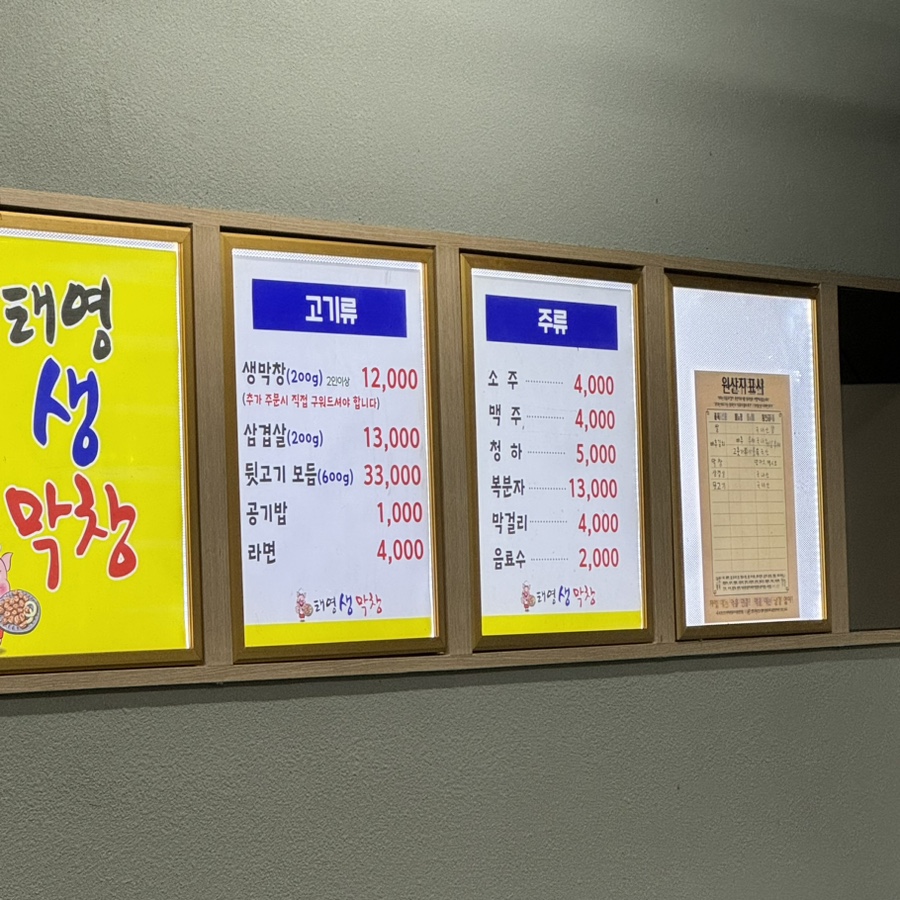 태영
생
막창
고기류
생막창(200g) 2인이상 12,000
(추가 주문시 직접 구워드셔야 합니다)
삼겹살(200g) 13,000
뒷고기 모듬(600g) 33,000
공기밥 1,000
라면 4,000
태영 생 막창
주류
소 주 4,000
맥 주 4,000
청 하 5,000
복분자 13,000
막걸리 4,000
음료수 2,000
태영 생 막창
원산지 표시